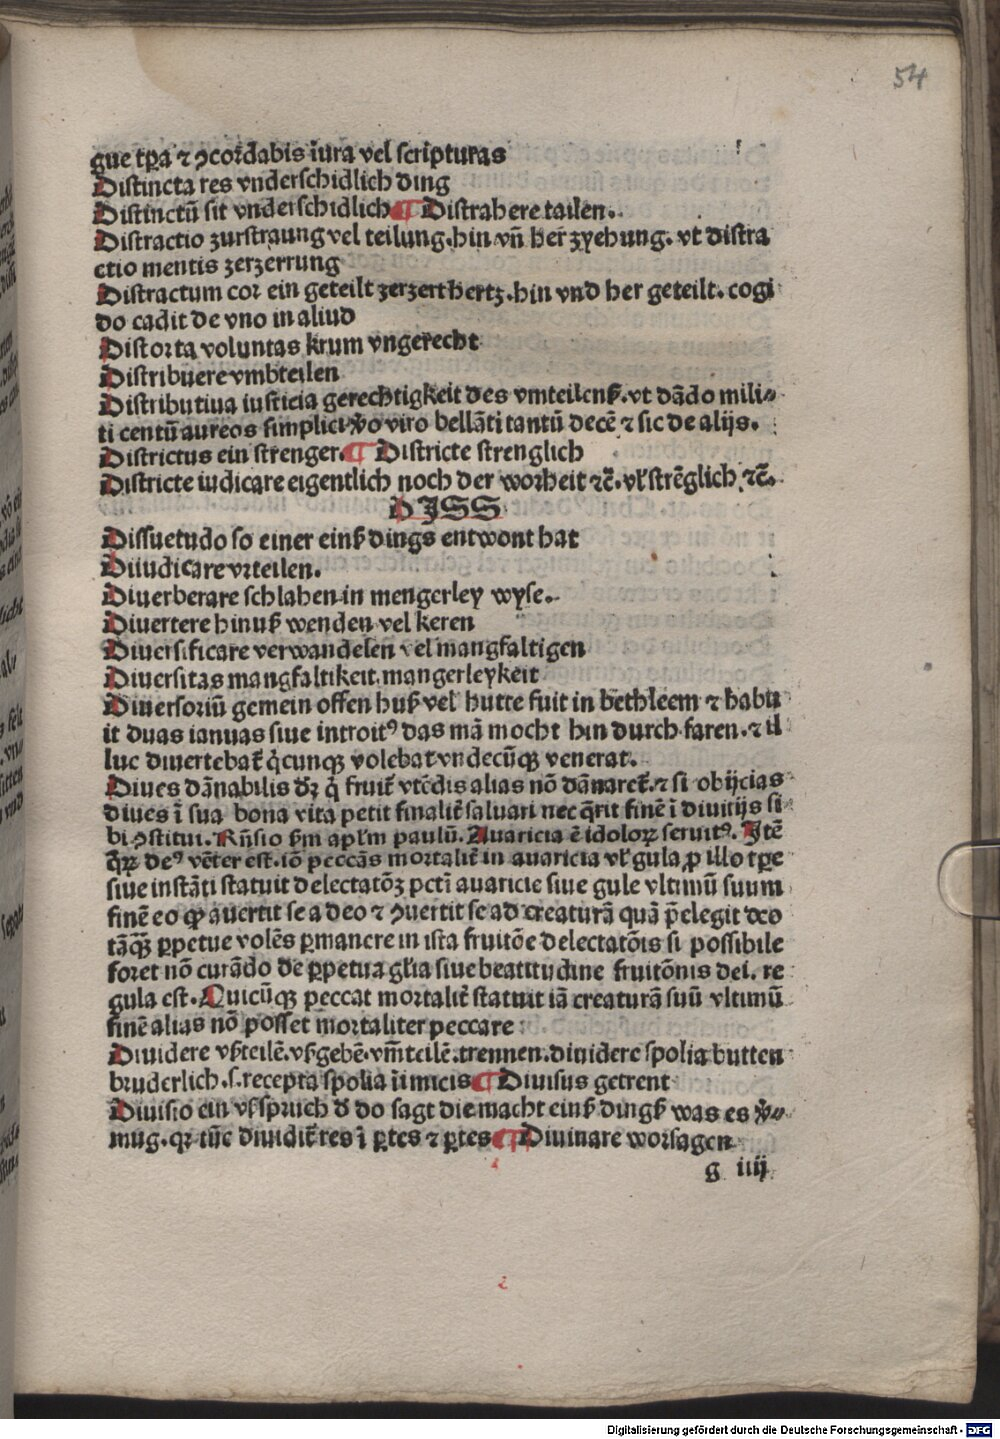 54
gue tꝑa ⁊ ꝯcordabis iura vel scripturas
Distincta res vnderschidlich ding
Distinctū sit vnderschidlich ¶ Distrahere tailen.
Distractio zurstraung vel teilung. hin vn̄ her zyehung. vt distra
ctio mentis zerzerrung
Distractum cor ein geteilt zerzert hertz. hin vnd her geteilt. cogi
do cadit de vno in aliud
Distorta voluntas krum vngerecht
Distribuere vmbteilen
Distributiua iusticia gerechtigkeit des vmteilenß. vt dādo mili⸗
ti centū aureos simplici v̄o viro bellāti tantū decē ⁊ sic de alijs.
Districtus ein strenger. ¶ Districte strenglich
Districte iudicare eigentlich noch der worheit ⁊c̄. vl' strēglich ⁊c̄.
DISS
Dissuetudo so einer einß dings entwont hat
Diiudicare vrteilen.
Diuerberare schlahen in mengerley wyse.
Diuertere hinuß wenden vel keren
Diuersificare verwandelen vel mangfaltigen
Diuersitas mangfaltikeit. mangerleykeit
Diuersoriū gemein offen huß vel hutte fuit in bethleem ⁊ habu
it duas ianuas siue introitꝰ das mā mocht hin durch faren. ⁊ il
luc diuertebat̄ q̇cunqꝫ volebat vndecūqꝫ venerat.
Diues dānabilis dꝝ q̇ fruit̄ vtēdis alias nō dānaret̄. ⁊ si obijcias
diues ī sua bona vita petit finalit̄ saluari nec q̄rit finē ī diuitijs si
bi ꝯstitui. Rn̄sio ẜm apl'm paulū. Auaricia ē idoloꝝ seruitꝰ. Itē
q̄ꝝ deꝰ vēter est. iō peccās mortalit̄ in auaricia vl' gula ꝓ illo tꝑe
siue instāti statuit delectatōꝫ pctī auaricie siue gule vltimū suum
finē eo ꝙ auertit se a deo ⁊ ꝯuertit se ad creaturā quā p̄elegit deo
tāqꝫ̄ ꝑpetue volēs ꝑmanere in ista fruitōe delectatōis si possibile
foret nō curādo de ꝑpetua gl'ia siue beatitudine fruitōnis dei. re
gula est. Quicūqꝫ peccat mortalit̄ statuit iā creaturā suū vltimū
finē alias nō posset mortaliter peccare
Diuidere vßteilē. vßgebē. vm̄teilē. trennen. diuidere spolia butten
bruderlich. s. recepta spolia inimicis ¶ Diuisus getrent
Diuisio ein vßspruch d̄ do sagt die macht einß dingß was es v̄⸗
mug. qꝛ tūc diuidit̄ res ī ꝑtes ⁊ ꝑtes ¶ Diuinare worsagen
g iiij
Digitalisierung gefördert durch die Deutsche Forschungsgemeinschaft - DFG